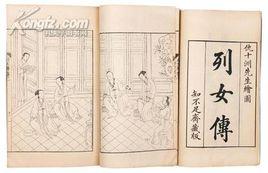 Kongfz.com
仇十洲先生繪圖
列女傳
知不足齋藏版